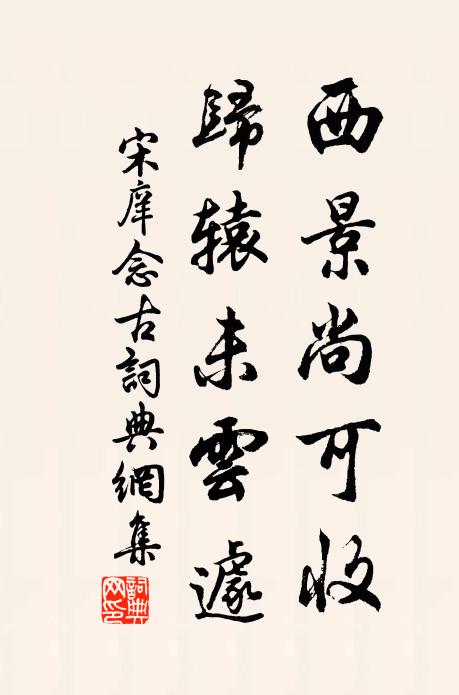 西景尚可收
歸辕未雲遽
宋庠念古詞典網集
詞典網印